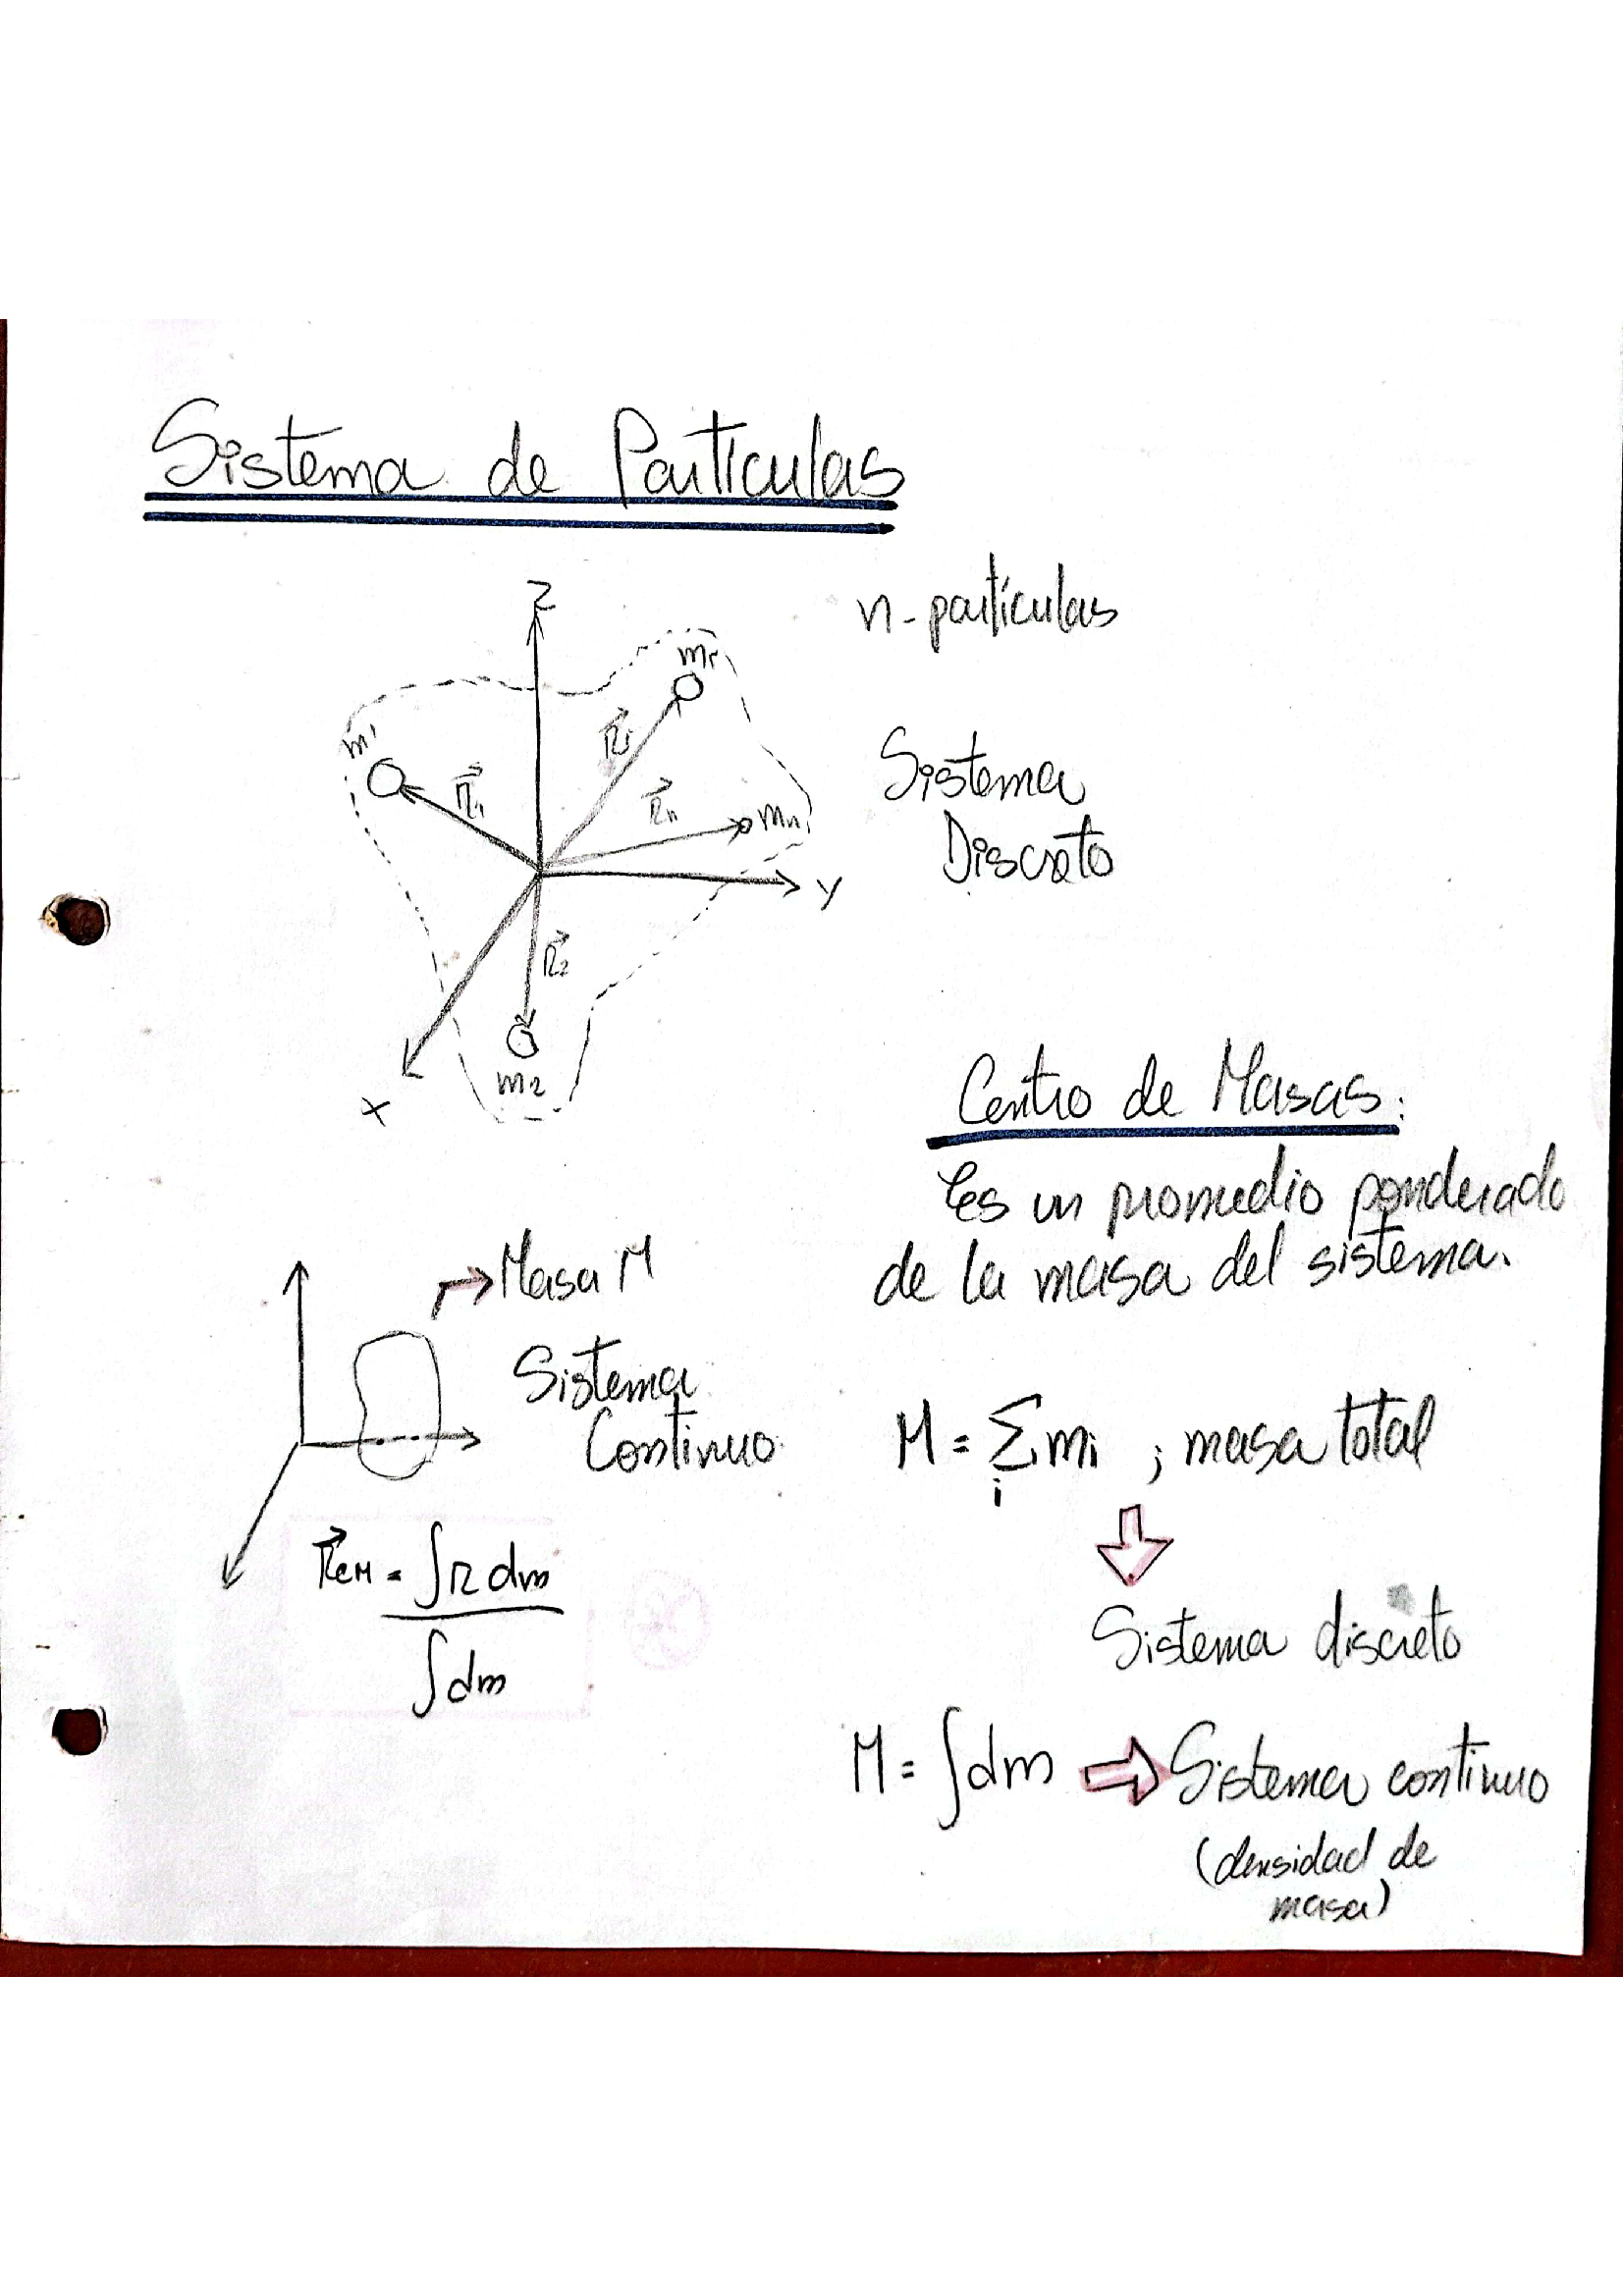 Sistema de Partículas
n-partículas
Z
mi
m1
r⃗i
r⃗1
r⃗n
mn
Sistema
Discreto
Y
r⃗2
m2
X
Centro de Masas:
Es un promedio ponderado
de la masa del sistema.
Masa M
Sistema
Continuo
M = Σ mi ; masa total
i
Sistema discreto
r⃗CM = ∫r dm
∫dm
M = ∫dm ⇒ Sistema continuo
(densidad de
masa)